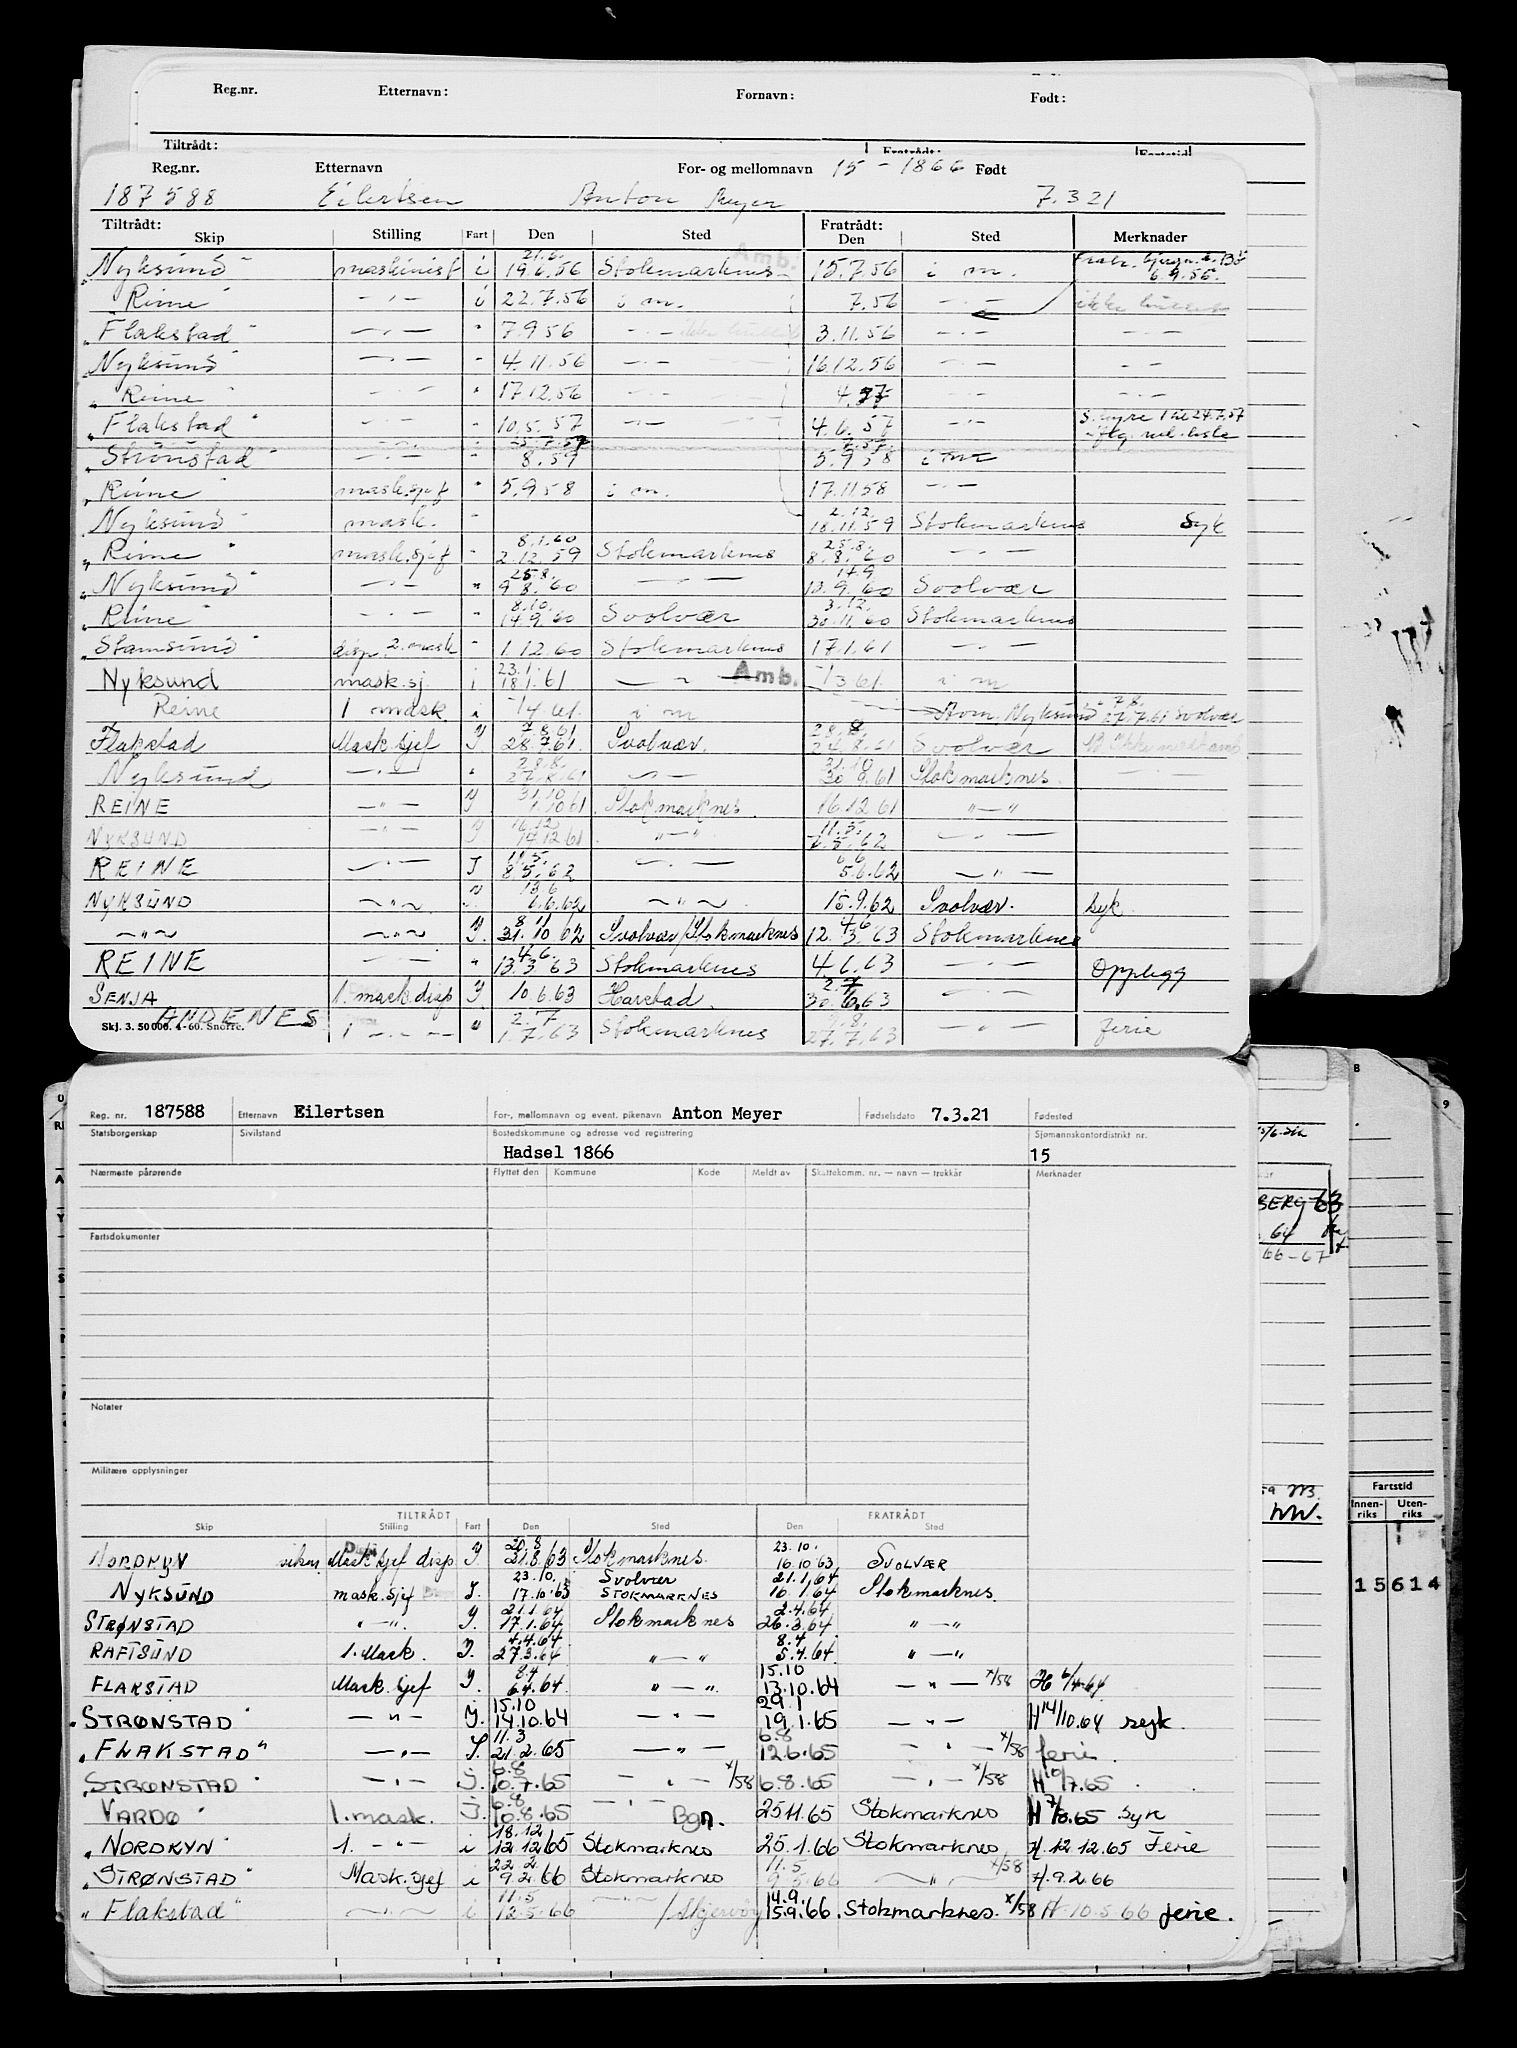 Reg.nr. Etternavn: Fornavn: Født:
Tiltrådt: Fratrådt: Fartstid
Reg.nr. Etternavn For- og mellomnavn 15 - 1866 Født
187588 Eilertsen Anton Meyer 7.3.21
Tiltrådt: Fratrådt:
Skip Stilling Fart Den Sted Den Sted Merknader
Amb.
21.6.
Nyksund" maskinist i 19.6.56 Stokmarknes 15.7.56 i m. 6.9.56.
"Reine" -"- i 22.7.56 i m. 7.56 -"-
"Flakstad" -"- " 7.9.56 -"- 3.11.56 -"- -"-
"Nyksund" -"- " 4.11.56 -"- 16.12.56 -"- -"-
"Reine" -"- " 17.12.56 -"- 4.57 -"- -"-
"Flakstad" -"- " 10.5.57 -"- 4.6.57 -"-
25.7.57
"Strønstad" -"- " 8.57 5.9.58 i m
"Reine" mask.sjef " 5.9.58 i m. 17.11.58 -"-
2.12.
"Nyksund" mask. " 18.11.59 Stokmarknes Syk
8.1.60 25.8.
"Reine" mask.sjef " 2.12.59 Stokmarknes 8.8.60 -"-
25.8. 17.9
"Nyksund" -"- " 9.8.60 -"- 13.9.60 Svolvær
8.10. 3.12.
"Reine" -"- " 14.9.60 Svolvær 30.11.60 Stokmarknes
"Stamsund" disp. 2. mask " 1.12.60 Stokmarknes 17.1.61 -"-
23.1.
Nyksund mask.sj. i 18.1.61 -"- Amb. -/3 61 i m
Reine 1 mask. i -/4 61. i m Nyksund 27.7.61 Svolvær
7.8.61 28.8.
Flakstad Mask sjef J 28.7.61. Svolvær. 24.8.61 Svolvær
28.8. 31.10
Nyksund -"- " 27.8.61 -"- 30.9.61 Stokmarknes. -"-
31.10
REINE -"- J 1.10.61 Stokmarknes 16.12.61 "-"
16.12 11.5.
NYKSUND -"- J 14.12.61 "-" 7.5.62 -"-
11.5. 6.6
REINE -"- J 8.5.62 -"- 5.6.62 -"-
13.6
NYKSUND -"- J. 6.6.62 -"- 15.9.62 Svolvær. Syk.
8.11 4.6
-"- -"- J. 31.10.62 Svolvær/Stokmarknes 12.3.63 Stokmarknes
4.6.
REINE -"- " 13.3.63 Stokmarknes 4.6.63 -"- Opplegg
2.7
SENJA 1. mask. disp J. 10.6.63 Harstad. 30.6.63
2.7 9.8.
ANDENES 1 -"- " 1.7.63 Stokmarknes 27.7.63 -"- ferie
Skj. 3. 50 000. 4-60. Snorre.
Reg. nr. 187588 Etternavn Eilertsen For-, mellomnavn og event. pikenavn Anton Meyer Fødselsdato 7.3.21 Fødested
Statsborgerskap Sivilstand Bostedskommune og adresse ved registrering Sjømannskontordistrikt nr.
Hadsel 1866 15
Nærmeste pårørende Flyttet den Kommune Kode Meldt av Skattekomm. nr. — navn — trekkår Merknader
BERG 63
64
66-67
Fartsdokumenter
Notater
Militære opplysninger
Fartstid
Innenriks Utenriks
15614
TILTRÅDT FRATRÅDT
Skip Stilling Fart Den Sted Den Sted
20.8 23.10.
NORDKYN vikar Mask sjef disp J. 21.8.63 Stokmarknes. 16.10.63 SVOLVÆR
23.10. Svolvær 21.1.64
NYKSUND mask.sjef J. 17.10.63 STOKMARKNES 16.1.64 Stokmarknes.
21.1.64 2.4.64
STRØNSTAD "-" J. 17.1.64 Stokmarknes 26.3.64 "-"
4.4.64 8.4
RAFTSUND 1. Mask. J. 27.3.64 "-" 5.4.64 "-"
8.4 15.10
FLAKSTAD Mask. sjef J. 6.4.64 "-" 13.10.64 -"- x/58 H 6/4-64
15.10 29.1
"STRØNSTAD" -"- J. 14.10.64 -"- 19.1.65 -"- H 14/10.64 syk.
11.3 6.8
"FLAKSTAD" -"- J. 21.2.65 -"- 12.6.65 -"- x/58 ferie
6.8
"STRØNSTAD" -"- J. 10.7.65 -"- x/58 6.8.65 -"- x/58 H 10/7.65
6.8 -"-
"VARDØ" 1. mask. J. 10.8.65 Bgn. 25.11.65 Stokmarknes H 7/8.65 syk
18.12
"NORDKYN" 1. -"- i 12.12.65 Stokmarknes 25.1.66 Stokmarknes H. 12.12.65 Ferie
22.2 11.5
"STRØNSTAD" Mask.sjef i 9.2.66 Stokmarknes 9.5.66 -"- x/58 H. 9.2.66
11.5 14.9.
"Flakstad" -"- i 12.5.66 -"- /Skjervøy 15.9.66. Stokmarknes. x/58 H 10.5.66 ferie.